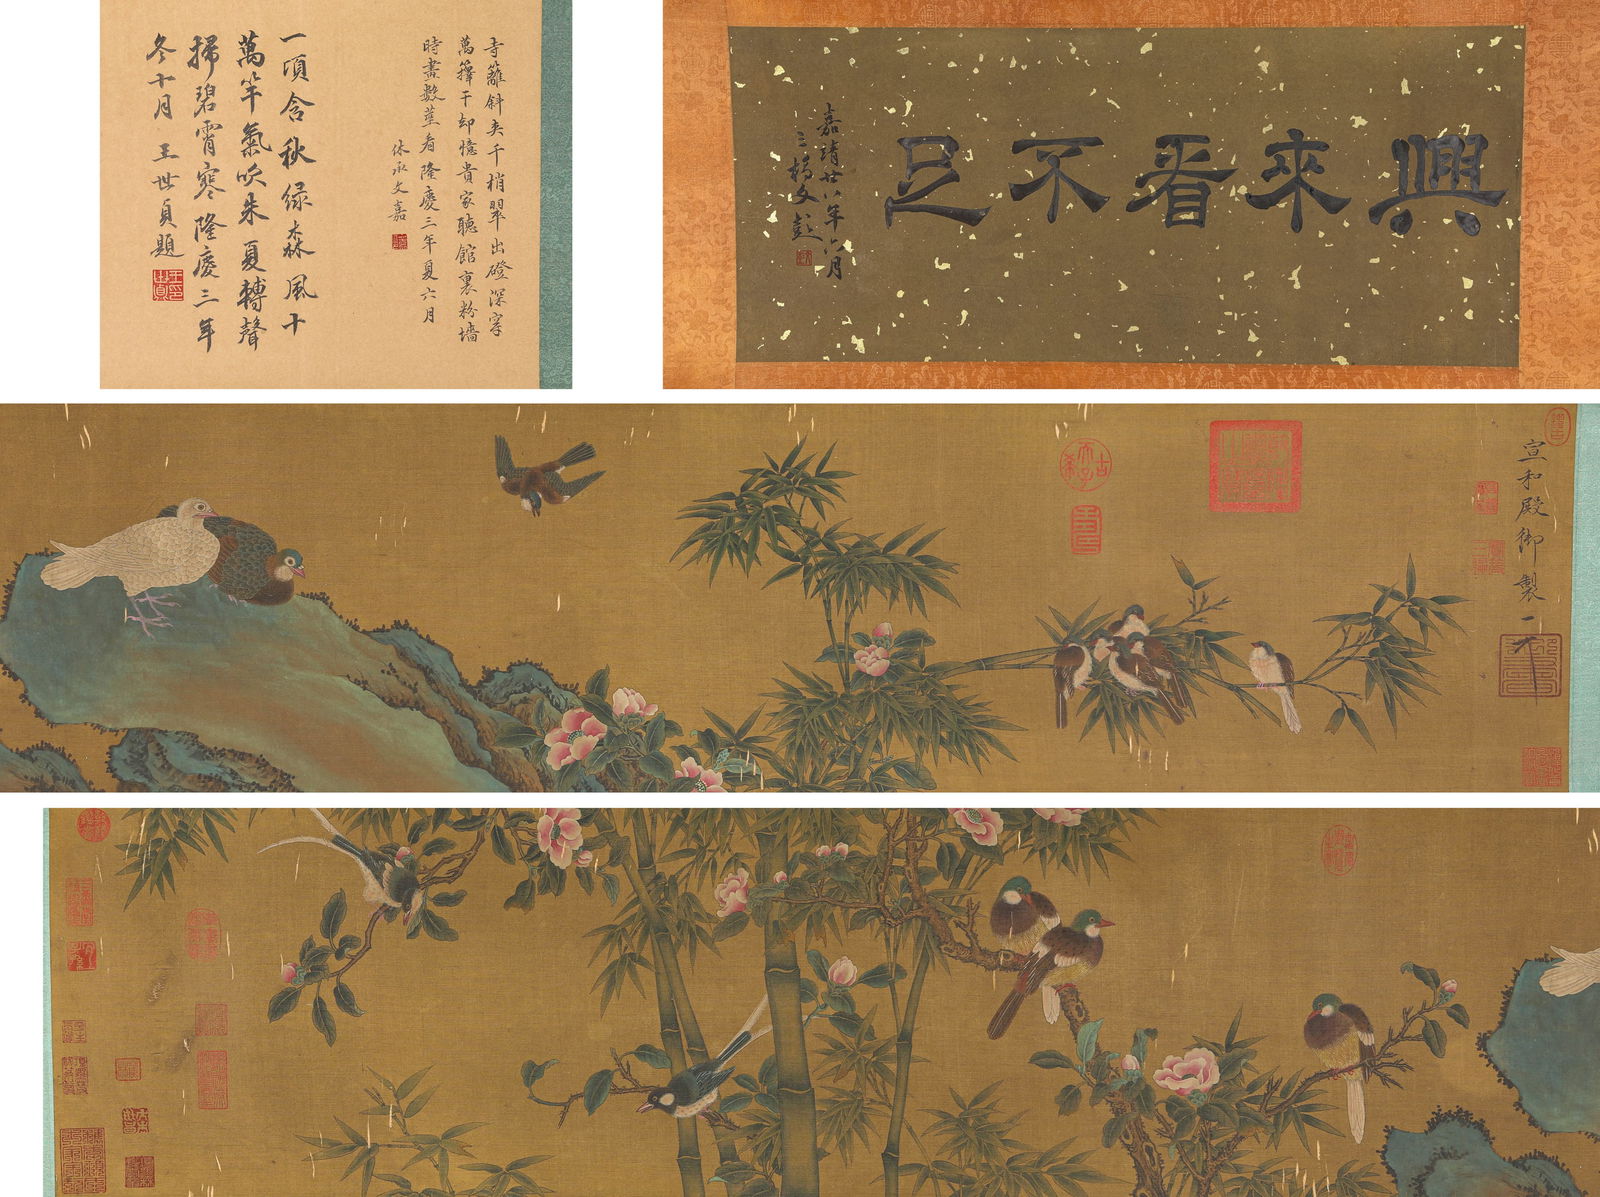 興來看不足
嘉靖廿八年六月
三橋文彭
宣和殿御製
寺籬斜夾千梢翠出磴深穿
萬籜干却憶貴家聽館裏粉墻
時畫數莖看隆慶三年夏六月
休承文嘉
一頃含秋綠森風十
萬竿氣吹朱夏轉聲
掃碧霄寒隆慶三年
冬十月王世貞題